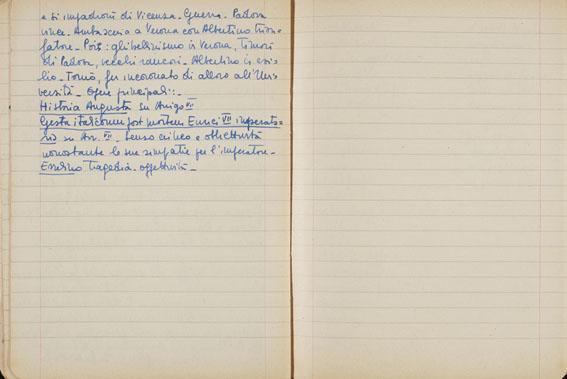 e si impadronì di Vicenza. Guerra. Padova
vince. Ambasceria a Verona con Albertino trion-
fatore. Poi: ghibellinismo in Verona, timori
di Padova, vecchi rancori. Albertino in esi-
lio. Tornò, fu incoronato di alloro all'Uni-
versità. Opere principali:
Historia Augusta su Arrigo VII
Gesta italicorum post mortem Enrici VII imperato-
ris su Arr. VII. Senso critico e obbiettività
nonostante le sue simpatie per l'imperatore.
Ecerino tragedia. oggettività.